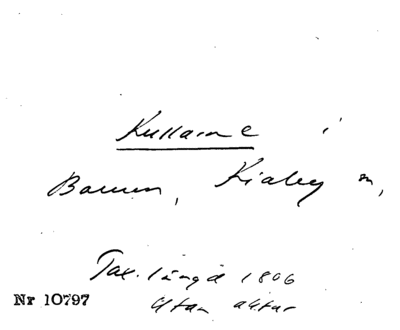 Kullarne i
Barum, Kiaby sn,
Tax.längd 1806
Utan aktur
Nr 10797